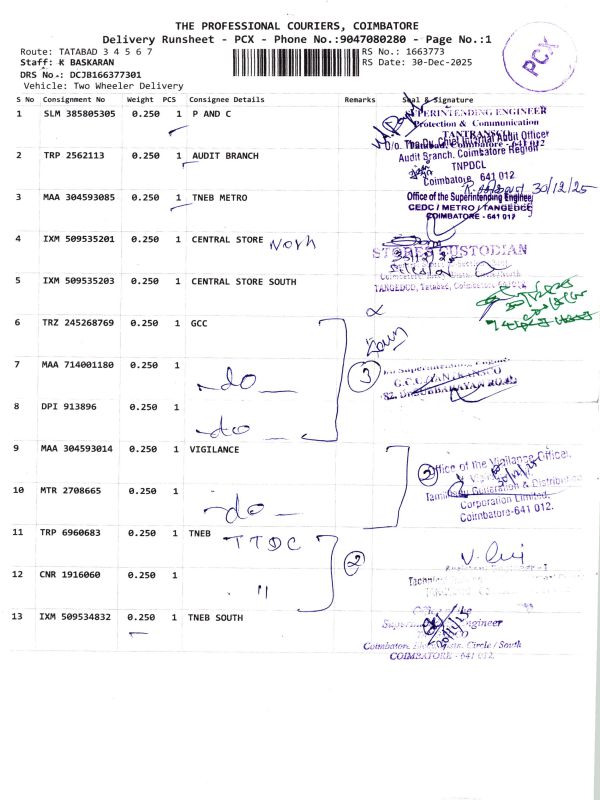 THE PROFESSIONAL COURIERS, COIMBATORE
Delivery Runsheet - PCX - Phone No.:9047080280 - Page No.:1
Route: TATABAD 3 4 5 6 7
RS No.: 1663773
Staff: K BASKARAN
RS Date: 30-Dec-2025
DRS No.: DCJB166377301
Vehicle: Two Wheeler Delivery
PCX
S No Consignment No Weight PCS Consignee Details Remarks Seal & Signature
1 SLM 385805305 0.250 1 P AND C
SUPERINTENDING ENGINEER
Protection & Communication
TANTRANSCO
Coimbatore - 641 012
2 TRP 2562113 0.250 1 AUDIT BRANCH
D/o. The Dy. Chief Internal Audit Officer
Audit Branch, Coimbatore Region
TNPDCL
Coimbatore, 641 012.
30/12/25
3 MAA 304593085 0.250 1 TNEB METRO
Office of the Superintending Engineer
CEDC / METRO / TANGEDCO
COIMBATORE - 641 012
4 IXM 509535201 0.250 1 CENTRAL STORE North
STORES CUSTODIAN
5 IXM 509535203 0.250 1 CENTRAL STORE SOUTH
TANGEDCO, Tatabad, Coimbatore 641012
6 TRZ 245268769 0.250 1 GCC
7 MAA 714001180 0.250 1
do
3
G.C.C/TANTRANSCO
8 DPI 913896 0.250 1
do
9 MAA 304593014 0.250 1 VIGILANCE
2
Office of the Vigilance Officer,
30/12/25
Tamilnadu Generation & Distribution
Corporation Limited,
Coimbatore-641 012.
10 MTR 2708665 0.250 1
do
11 TRP 6960683 0.250 1 TNEB
TTDC
2
12 CNR 1916060 0.250 1
"
13 IXM 509534832 0.250 1 TNEB SOUTH
Office of the
Superintending Engineer
Circle / South
COIMBATORE - 641 012.